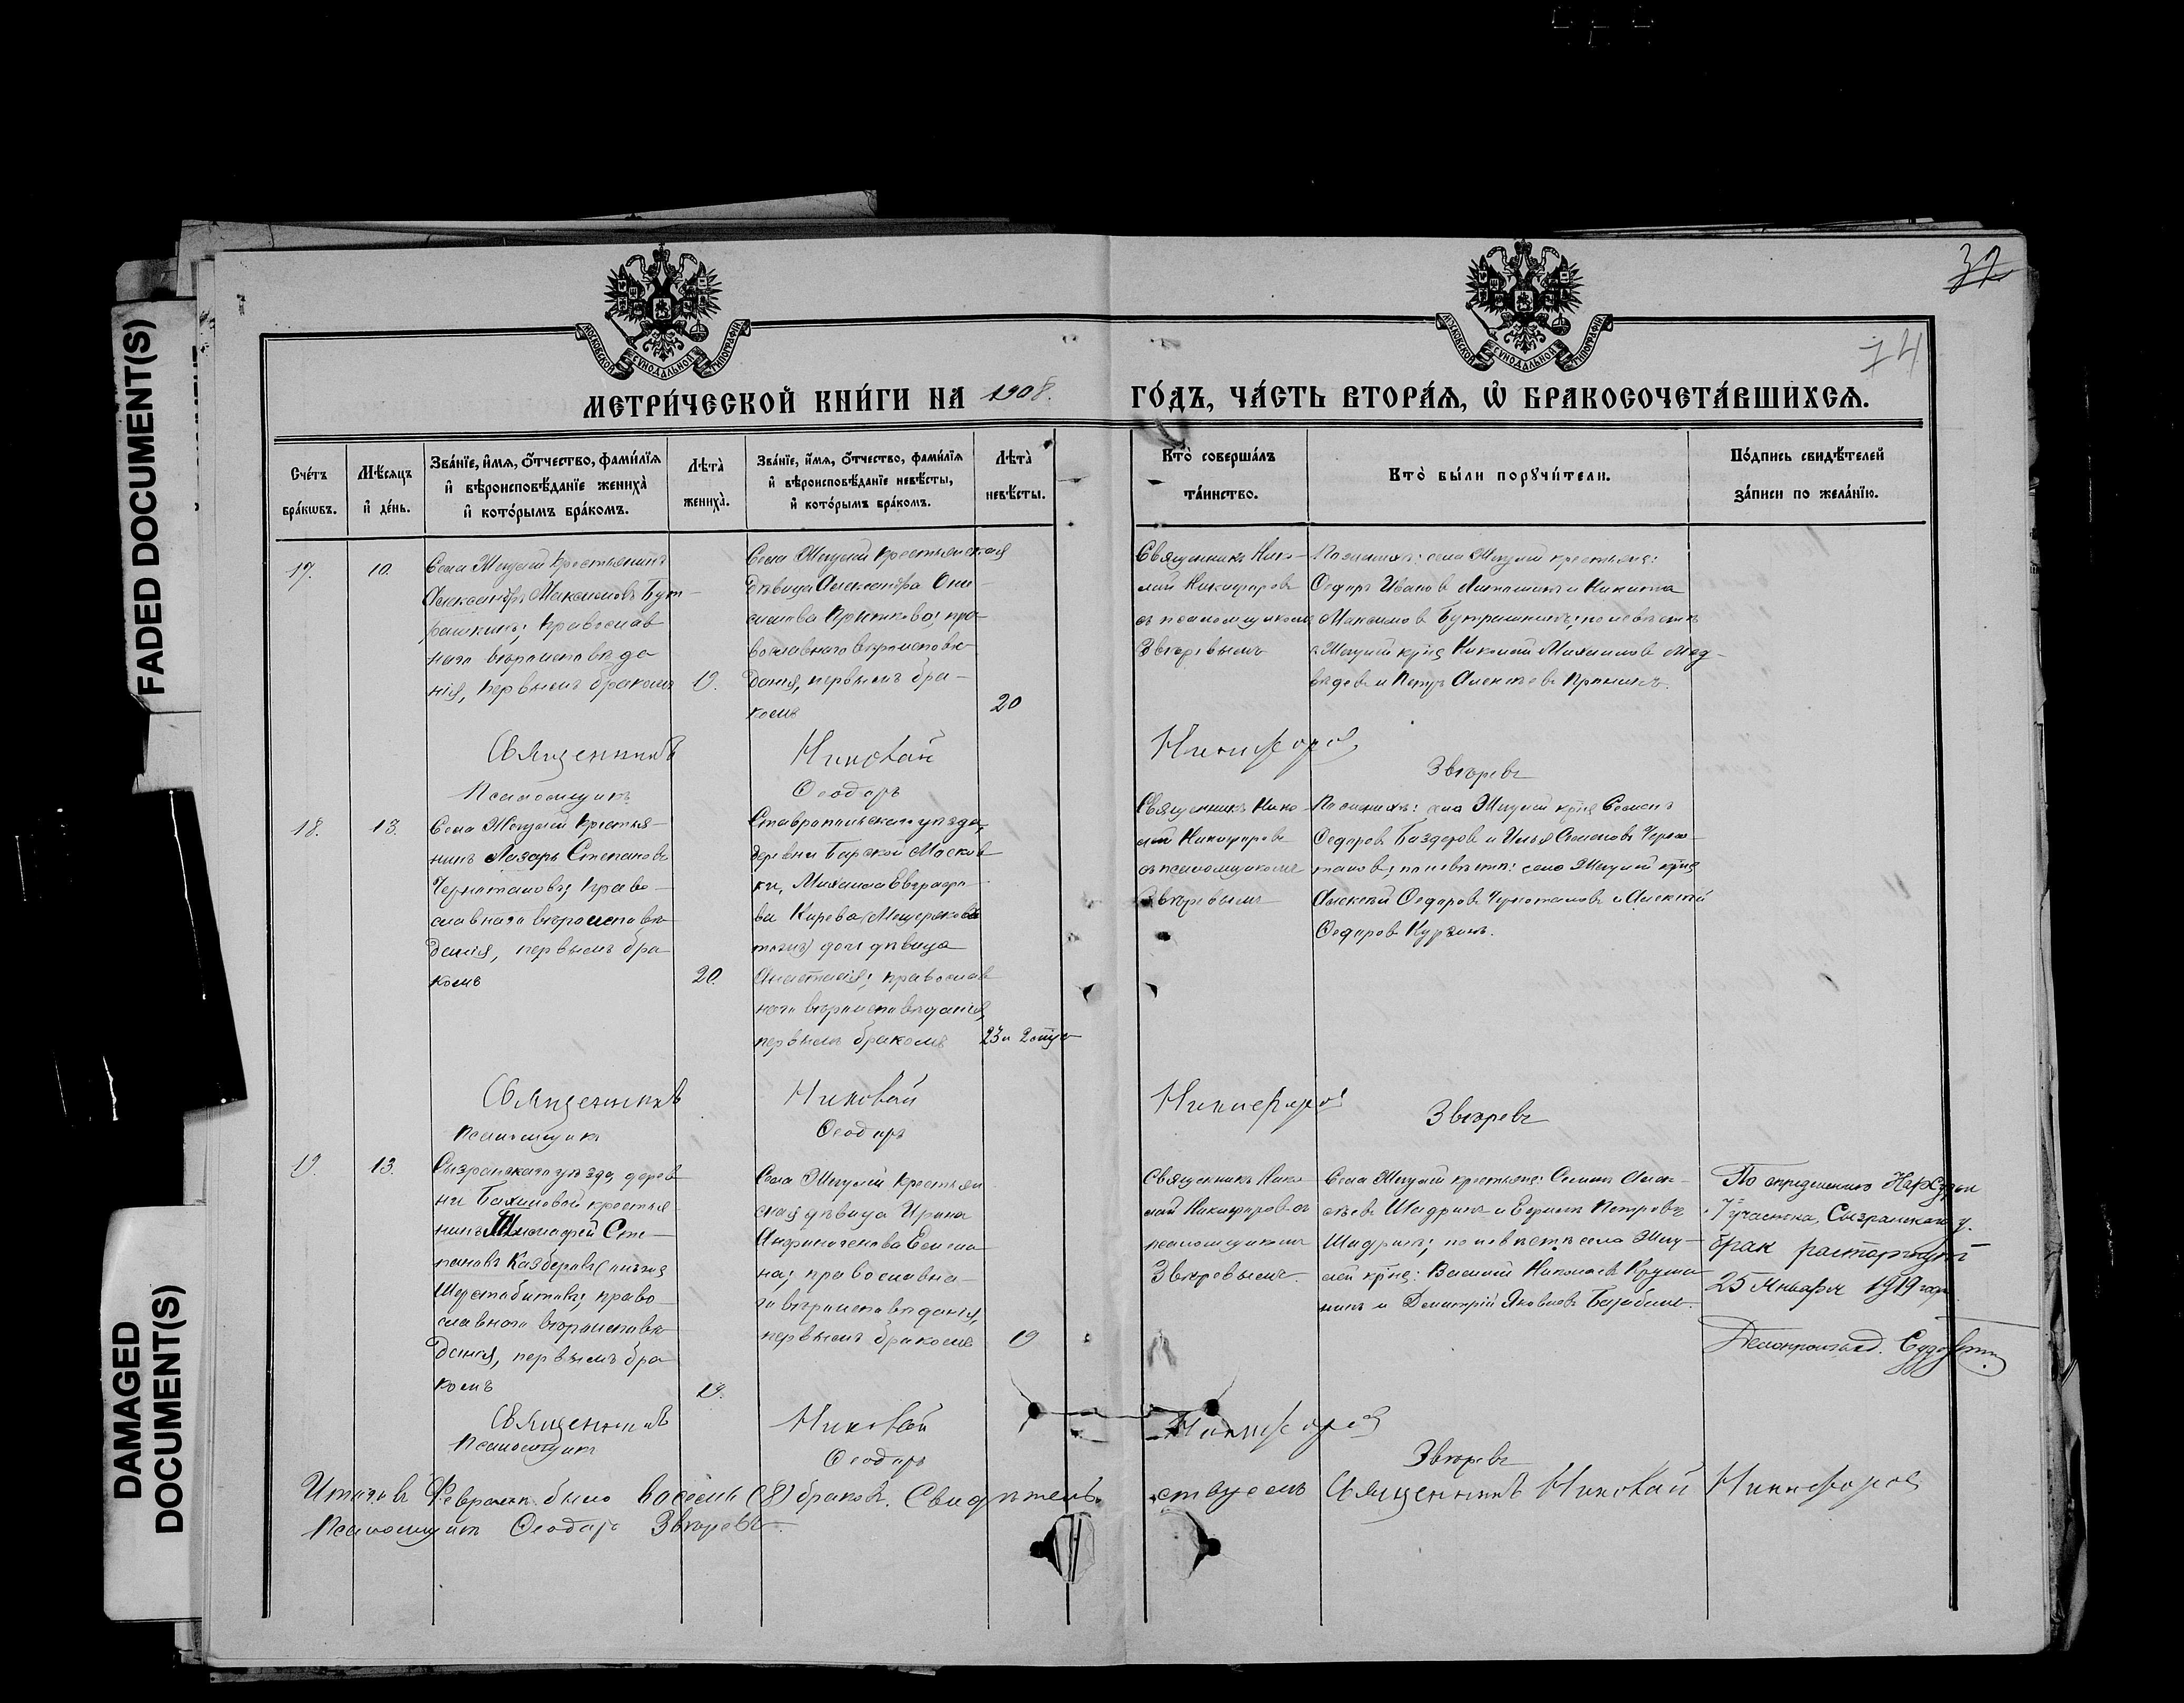 FADED DOCUMENT(S)
DAMAGED
DOCUMENT(S)
32
74
МОСКОВСКОЙ СѴНОДАЛЬНОЙ ТИПОГРАФІИ
МОСКОВСКОЙ СѴНОДАЛЬНОЙ ТИПОГРАФІИ
МЕТРИ́ЧЕСКОЙ КНИ́ГИ НА 1908. ГО́ДЪ, ЧА́СТЬ ВТОРА́Я, Ѡ҆ БРАКОСОЧЕТА́ВШИХСЯ.
Сче́тъ
бра́кѡвъ.
Мѣ́сяцъ
и҆ де́нь.
Зва́нїе, и҆́мя, ѻ҆́тчество, фами́лїя
и҆ вѣроисповѣ́данїе жениха̀
и҆ кото́рымъ бра́комъ.
Лѣта̀
жениха̀.
Зва́нїе, и҆́мя, ѻ҆́тчество, фами́лїя
и҆ вѣроисповѣ́данїе невѣ́сты,
и҆ кото́рымъ бра́комъ.
Лѣта̀
невѣ́сты.
Кто̀ соверша́лъ
та́инство.
Кто̀ бы́ли порꙋчи́тели.
По́дпись свидѣ́телей
за́писи по жела́нїю.
17.
10.
Села Жигулей крестьянинъ
Александръ Максимовъ Бут-
рашкинъ; православ
наго вѣроисповѣда
нія, первымъ бракомъ
19.
Села Жигулей крестьянская
дѣвица Александра Они-
симова; пра-
вославнаго вѣроисповѣ-
данія, первымъ бра-
комъ
20
Священникъ Нико-
лай Никифоровъ
съ псаломщикомъ
Звѣревымъ
По женихѣ: села Жигулей крестьяне:
Ѳедоръ Ивановъ и Никита
Максимовъ Бутрашкинъ; по невѣстѣ
с. Жигулей кр-не Николай Михаиловъ Мед-
вѣдевъ и Петръ Алексѣевъ
Священникъ Николай Никифоровъ
Псаломщикъ Ѳеодоръ Звѣревъ
18.
13.
Села Жигулей крестья-
нинъ Лазарь Степановъ
Чернотановъ; право-
славнаго вѣроисповѣ-
данія, первымъ бра
комъ
20.
Ставропольскаго уѣзда,
деревни Барской Москов
ки, Михаила Евграфо-
ва Кирева (Мещерякова
тожъ) дочь дѣвица
Анастасія; православ
наго вѣроисповѣданія,
первымъ бракомъ
23
Священникъ Нико-
лай Никифоровъ
съ псаломщикомъ
Звѣревымъ
По женихѣ: села Жигулей кр-не Семенъ
Ѳедоровъ Баздеровъ и Илья Семеновъ Черно-
тановъ; по невѣстѣ: села Жигулей кр-не
Алексѣй Ѳедоровъ Чернотановъ и Алексѣй
Ѳедоровъ
Священникъ Николай Никифоровъ
Псаломщикъ Ѳеодоръ Звѣревъ
19.
13.
Сызранскаго уѣзда, дерев
ни Бахиловой крестья
нинъ Тимофей Сте-
пановъ Казберовъ
право-
славнаго вѣроисповѣ-
данія, первымъ бра
комъ
19.
Села Жигулей крестьян
ская дѣвица Ирина
Андриногенова
на; православна-
го вѣроисповѣданія,
первымъ бракомъ
19
Священникъ Нико
лай Никифоровъ съ
псаломщикомъ
Звѣревымъ.
Села Жигулей крестьяне: Семенъ Алек-
сѣевъ Шадринъ и Ефимъ Петровъ
Шадринъ; по невѣстѣ села Жигу-
лей кр-не: Василій Николаевъ
и Димитрій Яковлевъ
По определению Нарсудьи
7 участка, Сызранского у.
брак расторгнут
25 Января 1919 года
Делопроизвод.
Священникъ Николай Никифоровъ
Псаломщикъ Ѳеодоръ Звѣревъ
Итого въ Февралѣ было восемь (8) браковъ. Свидѣтель-ствуемъ Священникъ Николай Никифоровъ
Псаломщикъ Ѳеодоръ Звѣревъ.